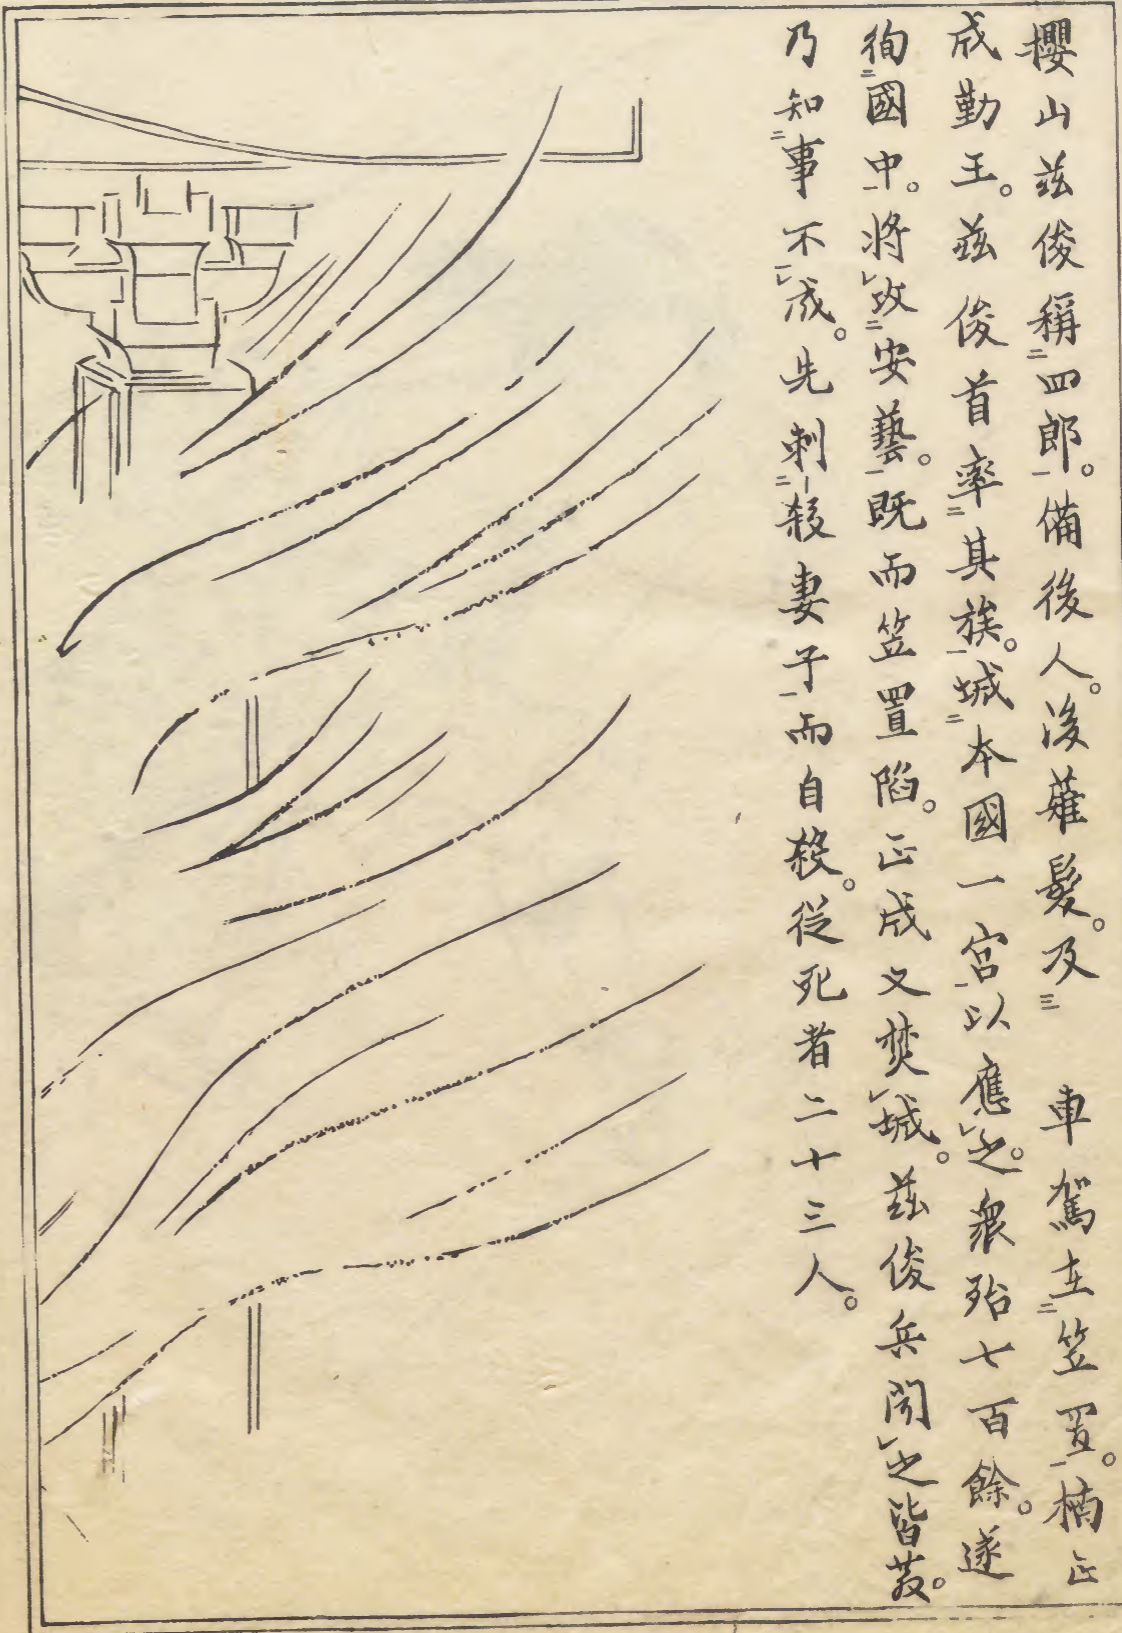 櫻山茲俊稱二四郎一。備後人。後薙髮。及三　車駕在二笠置一。楠正
成勤王。茲俊首率二其族一。城二本國一宮一以應レ之。衆殆七百餘。遂
徇二國中一。將レ攻二安藝一。既而笠置陷。正成又焚レ城。茲俊兵聞レ之皆散。
乃知二事不一レ成。先刺二殺妻子一而自殺。從死者二十三人。